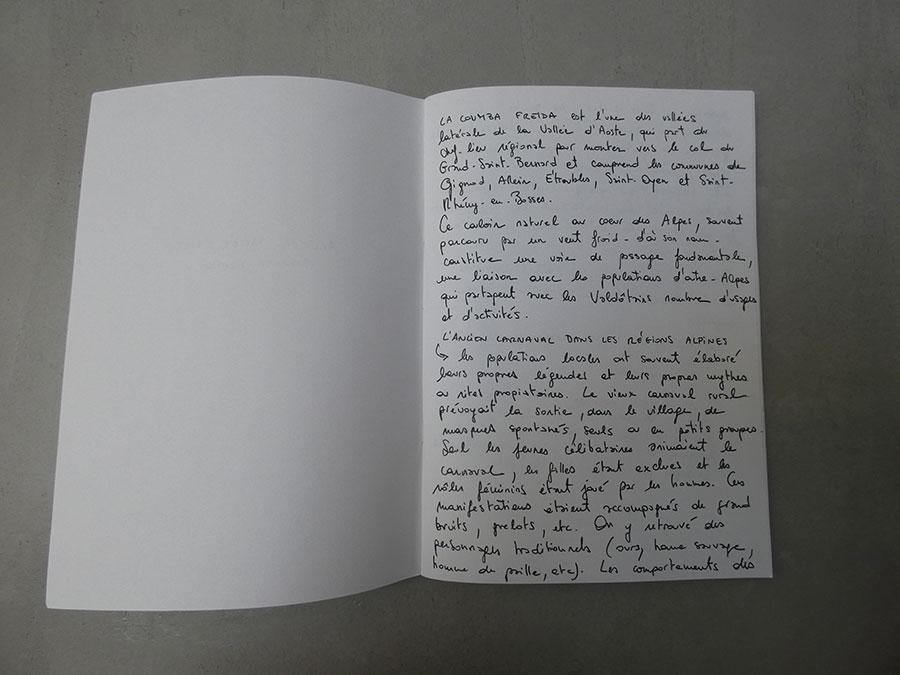 LA COUMBA FREIDA est l'une des vallées
latérale de la Vallée d'Aoste, qui part du
chef-lieu régional pour monter vers le col du
Grand-Saint-Bernard et comprend les communes de
Gignod, Allein, Etroubles, Saint-Oyen et Saint-
Rhémy-en-Bosses.
Ce couloir naturel au coeur des Alpes, souvent
parcouru par un vent froid - d'où son nom -
constitue une voie de passage fondamentale,
une liaison avec les populations d'outre-Alpes
qui partagent avec les Valdôtains nombre d'usages
et d'activités.
L'ANCIEN CARNAVAL DANS LES RÉGIONS ALPINES
↳ les populations locales ont souvent élaboré
leurs propres légendes et leurs propres mythes
ou rites propiatoires. Le vieux carnaval rural
prévoyait la sortie, dans le village, de
masques spontanés, seuls ou en petits groupes.
Seul les jeunes célibataires animaient le
carnaval, les filles étant exclues et les
rôles féminins étant joué par les hommes. Ces
manifestations étaient accompagnés de grand
bruits, grelots, etc. On y retrouvé des
personnages traditionnels (ours, home sauvage,
homme de paille, etc). Les comportements des